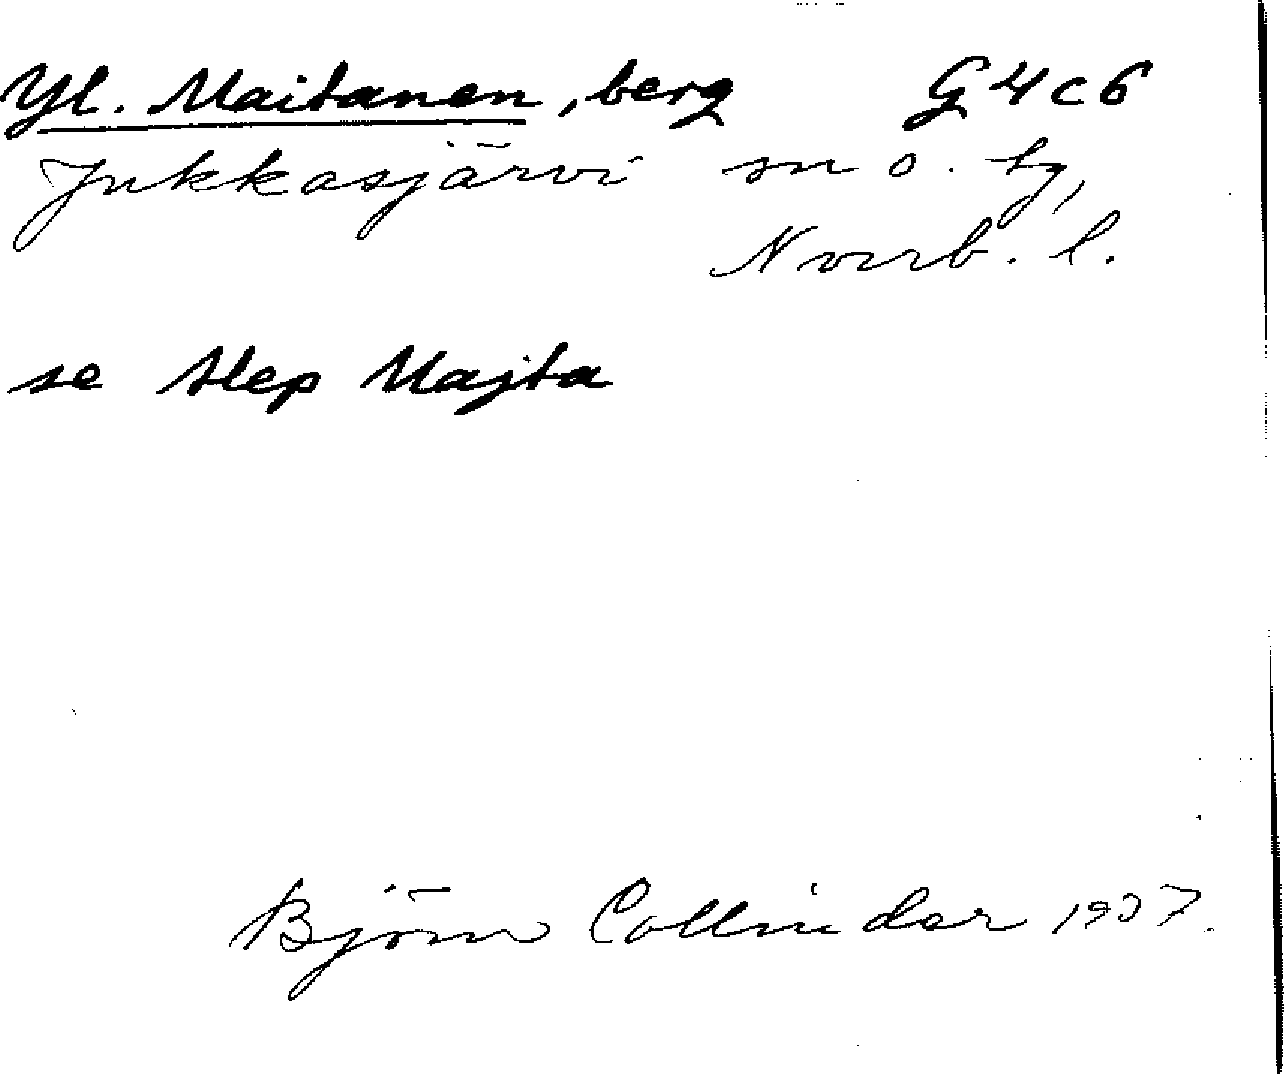 Yl. Maitanen, berg G4c6
Jukkasjärvi sn o. tg,
Norrb. l.
se Alep Majta
Björn Collinder 1937.